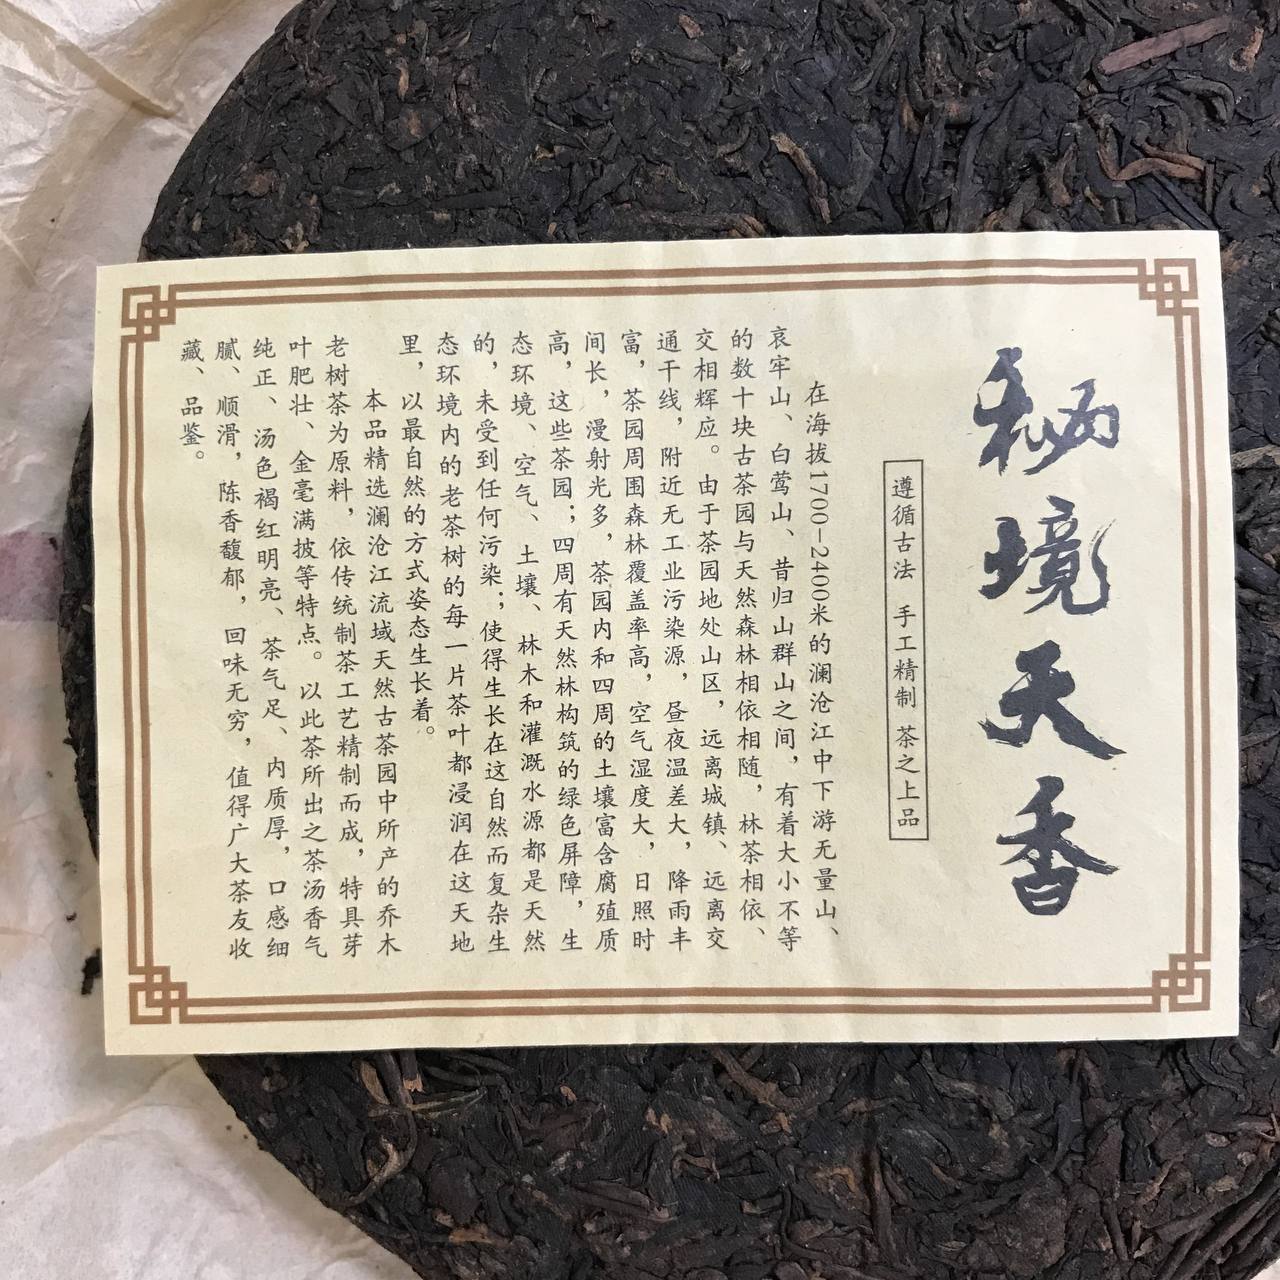 秘境天香
遵循古法 手工精制 茶之上品
在海拔1700-2400米的澜沧江中下游无量山、
哀牢山、白莺山、昔归山群山之间，有着大小不等
的数十块古茶园与天然森林相依相随，林茶相依、
交相辉应。由于茶园地处山区，远离城镇、远离交
通干线，附近无工业污染源，昼夜温差大，降雨丰
富，茶园周围森林覆盖率高，空气湿度大，日照时
间长，漫射光多，茶园内和四周的土壤富含腐殖质
高，这些茶园；四周有天然林构筑的绿色屏障，生
态环境、空气、土壤、林木和灌溉水源都是天然
的，未受到任何污染；使得生长在这自然而复杂生
态环境内的老茶树的每一片茶叶都浸润在这天地
里，以最自然的方式姿态生长着。
本品精选澜沧江流域天然古茶园中所产的乔木
老树茶为原料，依传统制茶工艺精制而成，特具芽
叶肥壮、金毫满披等特点。以此茶所出之茶汤香气
纯正、汤色褐红明亮、茶气足、内质厚，口感细
腻、顺滑，陈香馥郁，回味无穷，值得广大茶友收
藏、品鉴。